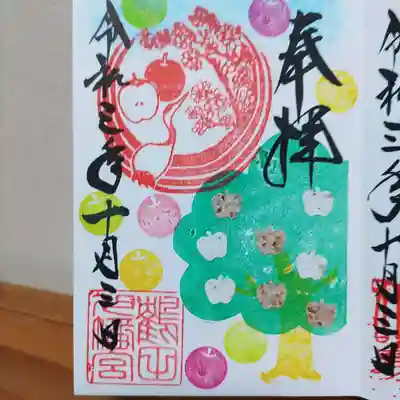 奉拝
令和三年十月三日
八幡宮
令和三年十月三日